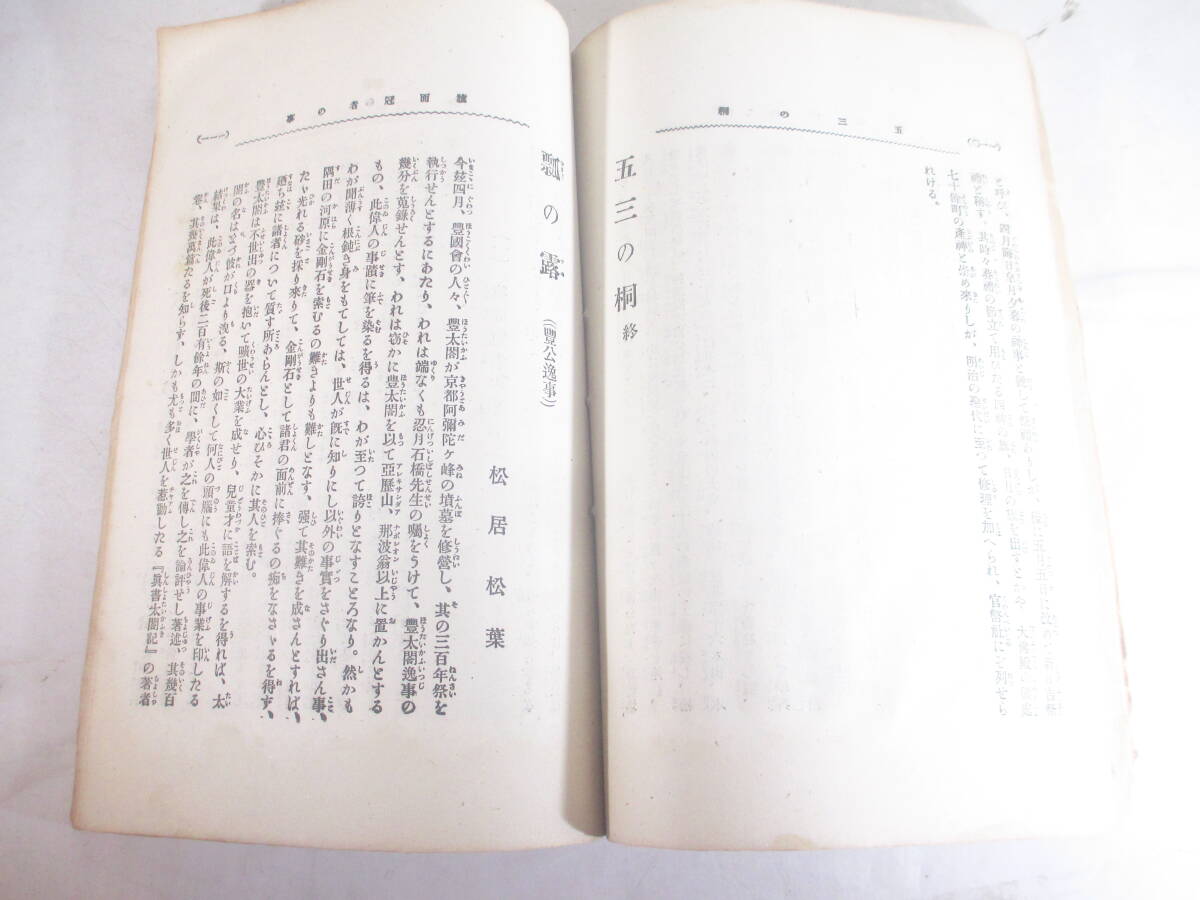 五三の桐
七十餘町の產神と崇め來りしが、明治の聖代に至つて修理を加へられ、官幣社に列せら
れける。
五三の桐 終
猿面冠者の事
(一一一)
瓢の露 (豐公逸事)
松居松葉
今玆四月、豐國會の人々、豐太閤が京都阿彌陀ヶ峰の墳墓を修營し、其の三百年祭を
執行せんとするにあたり、われは端なくも忍月石橋先生の囑をうけて、豐太閤逸事の
幾分を蒐錄せんとす、われは窃かに豐太閤を以て亞歷山、那波翁以上に置かんとする
もの、此偉人の事蹟に筆を染るを得るは、わが至つて誇りとなすことろなり。然かも
わが聞薄く根鈍き身をもてしては、世人が旣に知りにし以外の事實をさぐり出さん事、
隅田の河原に金剛石を索むるの難きよりも難しとなす、强て其難きを成さんとすれば、
たゞ光れる砂を採り來りて、金剛石として諸君の面前に捧ぐるの痴をなさゞるを得ず、
廼ち玆に諸者について質す所あらんとし、心ひそかに其人を索む。
豐太閤は不世出の器を抱いて曠世の大業を成せり、兒童才に語を解するを得れば、太
閤の名はまづ彼が口より洩る、斯の如くして何人の頭腦にも此偉人の事業を印したる
結果は、此偉人が死後二百有餘年の間に、學者が之を傳し之を論評せし著述、其幾百
卷、其幾萬篇たるを知らず、しかも尤も多く世人を惹動したる『眞書太閤記』の著者